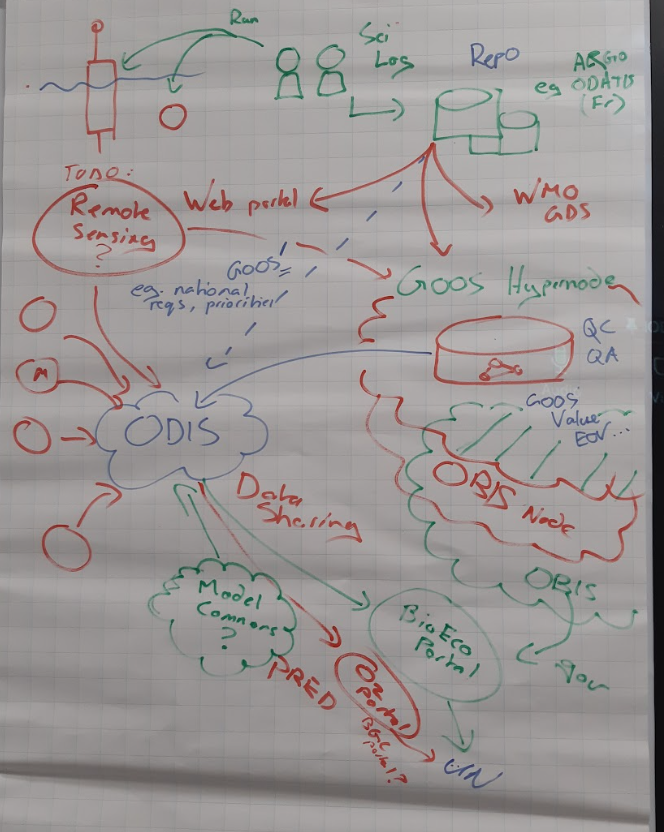 Run
Sci
Log
Repo
ARGO
eg ODATIS
(Fr)
TODO:
Remote
Sensing
?
Web portal
WMO
GDS
GOOS
eg. national
reqs, priorities
GOOS Hypernode
QC
QA
M
ODIS
GOOS
Value
EOV...
OBIS Node
OBIS
Data
Sharing
Model
Commons
?
PRED
BioEco
Portal
O2
Portal
BGC
portal?
gov
UN